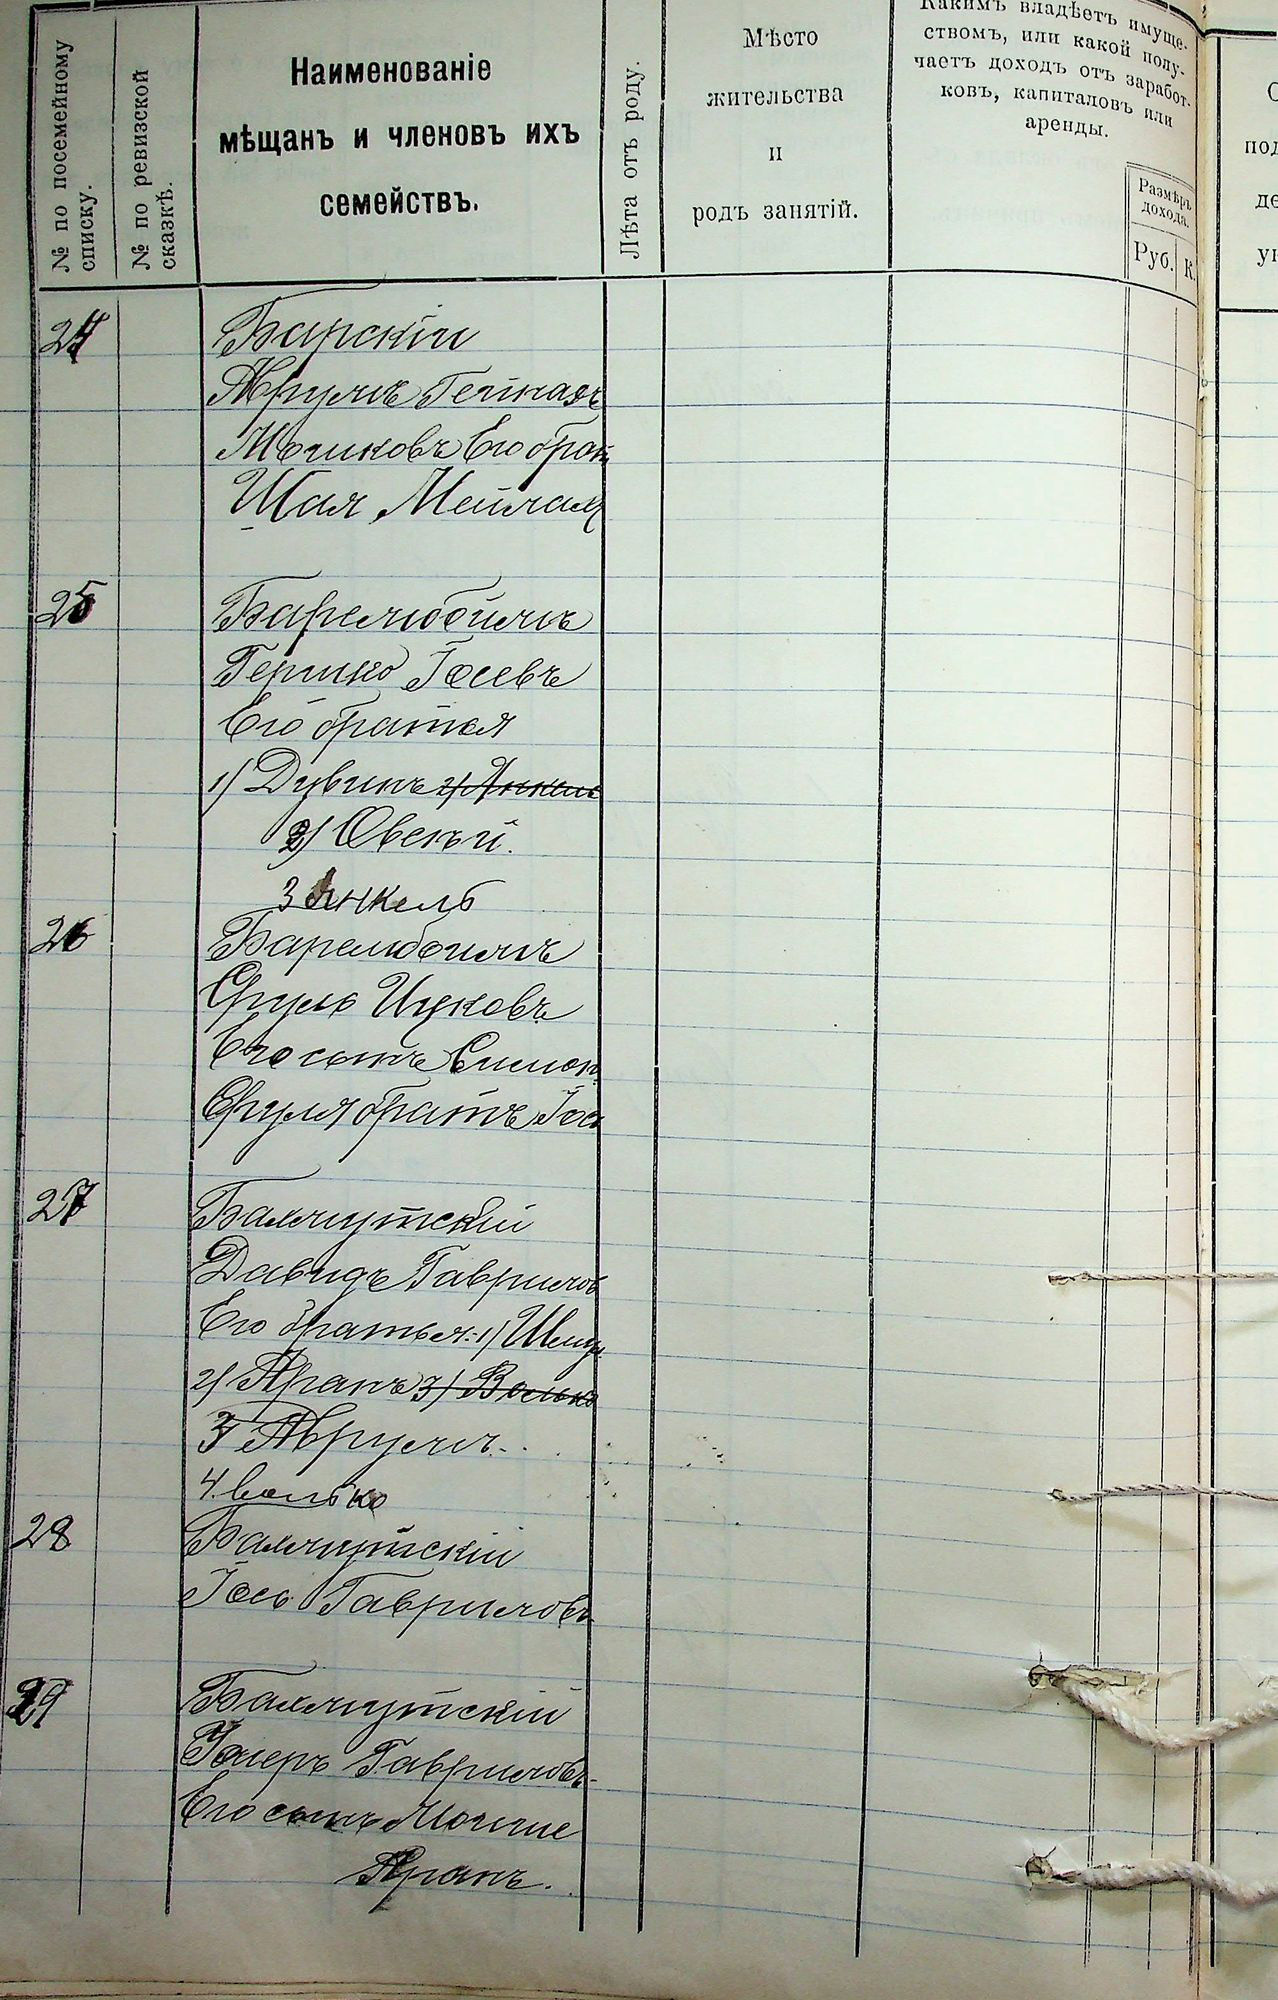 № по посемейному
списку.
№ по ревизской
сказкѣ.
Наименованіе
мѣщанъ и членовъ ихъ
семействъ.
Лѣта отъ роду.
Мѣсто
жительства
и
родъ занятій.
Какимъ владѣетъ имуще-
ствомъ, или какой полу-
чаетъ доходъ отъ заработ-
ковъ, капиталовъ или
аренды.
Размѣръ
дохода.
Руб.
К.
24
Барскій
Аврумъ Гейнахъ
Мошковъ Его брат
Шая Мейлах
25
Барембоимъ
Гершко Іосевъ
Его братья
1) Дувинъ 2) Янкель
2) Овсѣй.
3 Янкель
26
Баремboимъ
Сруль Ицковъ
Его сынъ Симон
Сруля братъ Іос
27
Бахмутскій
Давидъ Гаврилов
Его братья: 1) Шмул
2) Аранъ 3) Волько
3 Аврумъ.
4. Волько
28
Бахмутскій
Іось Гавриловъ
29
Бахмутскій
Гавриловъ
Его сынъ Мошше
Аранъ.